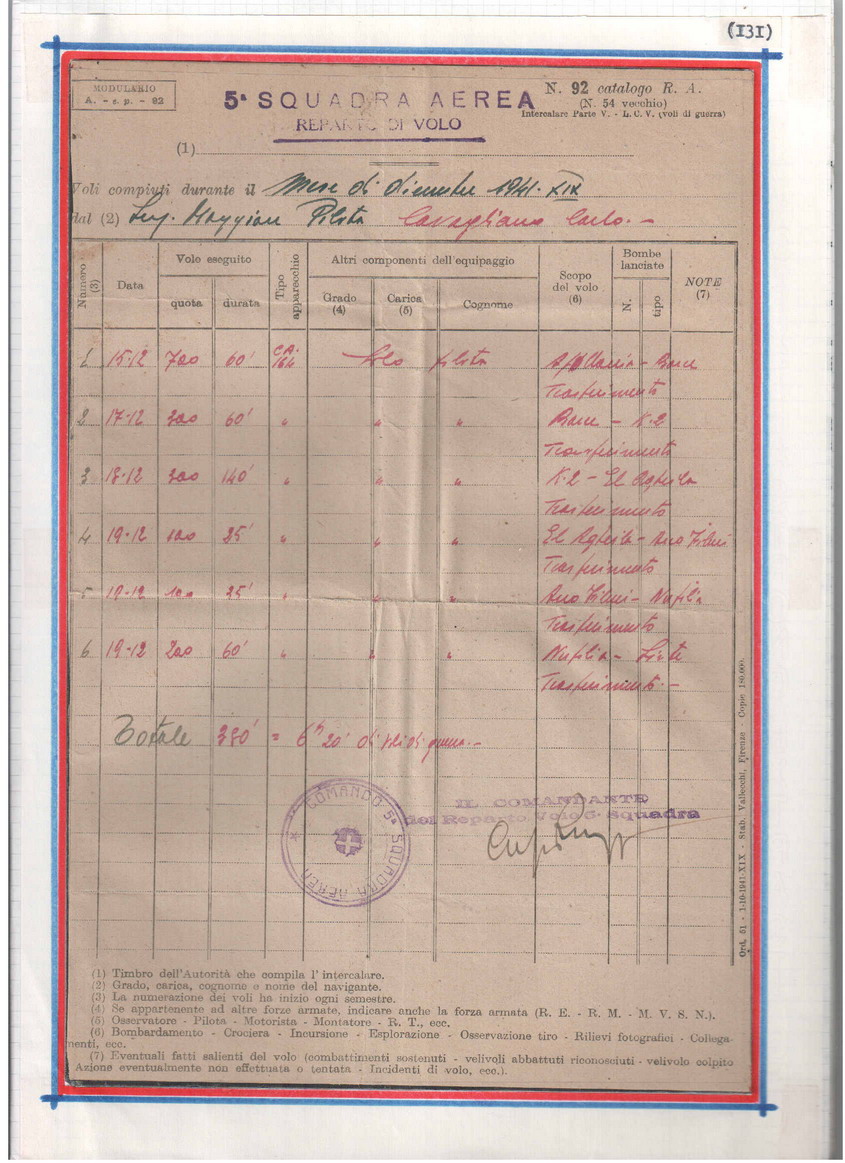 (131)
MODULARIO
A. - c. p. - 92
5ª SQUADRA AEREA
REPARTO DI VOLO
N. 92 catalogo R. A.
(N. 54 vecchio)
Intercalare Parte V. - L. C. V. (voli di guerra)
(1)
Voli compiuti durante il Mese di dicembre 1941-XIX
dal (2) Serg. Maggiore Pilota Cavagliano Carlo.-
Numero (3)
Data
Volo eseguito
quota
durata
Tipo apparecchio
Altri componenti dell'equipaggio
Grado (4)
Carica (5)
Cognome
Scopo del volo (6)
Bombe lanciate
N.
tipo
NOTE (7)
1 15-12 700 60' C.A. 164 Solo pilota - Barce
Trasferimento
2 17-12 300 60' " " " Barce - K.2
Trasferimento
3 18-12 300 140' " " " K.2 - El Agheila
Trasferimento
4 19-12 100 35' " " " El Agheila - Arco Fileni
Trasferimento
5 19-12 100 25' " " " Arco Fileni - Nufilia
Trasferimento
6 19-12 200 60' " " " Nufilia - Sirte
Trasferimento.-
Totale 380' = 6h 20' di voli di guerra.-
COMANDO 5ª SQUADRA AEREA
IL COMANDANTE
del Reparto Volo 5ª Squadra
Ord. 51 - 1-10-1941-XIX - Stab. Vallecchi, Firenze - Copie 180.000.
(1) Timbro dell'Autorità che compila l'intercalare.
(2) Grado, carica, cognome e nome del navigante.
(3) La numerazione dei voli ha inizio ogni semestre.
(4) Se appartenente ad altre forze armate, indicare anche la forza armata (R. E. - R. M. - M. V. S. N.).
(5) Osservatore - Pilota - Motorista - Montatore - R. T., ecc.
(6) Bombardamento - Crociera - Incursione - Esplorazione - Osservazione tiro - Rilievi fotografici - Collega-
menti, ecc.
(7) Eventuali fatti salienti del volo (combattimenti sostenuti - velivoli abbattuti riconosciuti - velivolo colpito
Azione eventualmente non effettuata o tentata - Incidenti di volo, ecc.).